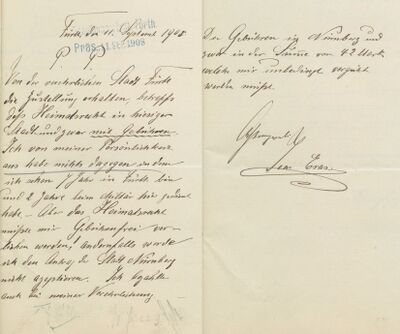 Fürth den 11. September 1908
Präs. 11. SEP. 1908
P. P.
Von der verehrlichen Stadt Fürth
die Zustellung erhalten betreffs
das Heimatrecht in hiesiger
Stadt und zwar mit Gebühren.
Ich von meiner Persönlichkeit
aus habe nichts dagegen in dem
ich schon 7 Jahr in Fürth bin
und 2 Jahre beim Militär hie
habe. Aber das Heimatrecht
müßte mir Gebührenfrei ver-
liehen werden, andernfalls werde
ich den Antrag der Stadt Nürnberg
nicht akzeptieren. Ich bezahlte
auch bei meiner Verehelichung
Den Gebühren in Nürnberg und
zwar in der Summe von 42 Mark
welche mir unbedingt vergütet
werden müßte.
Achtungsvoll